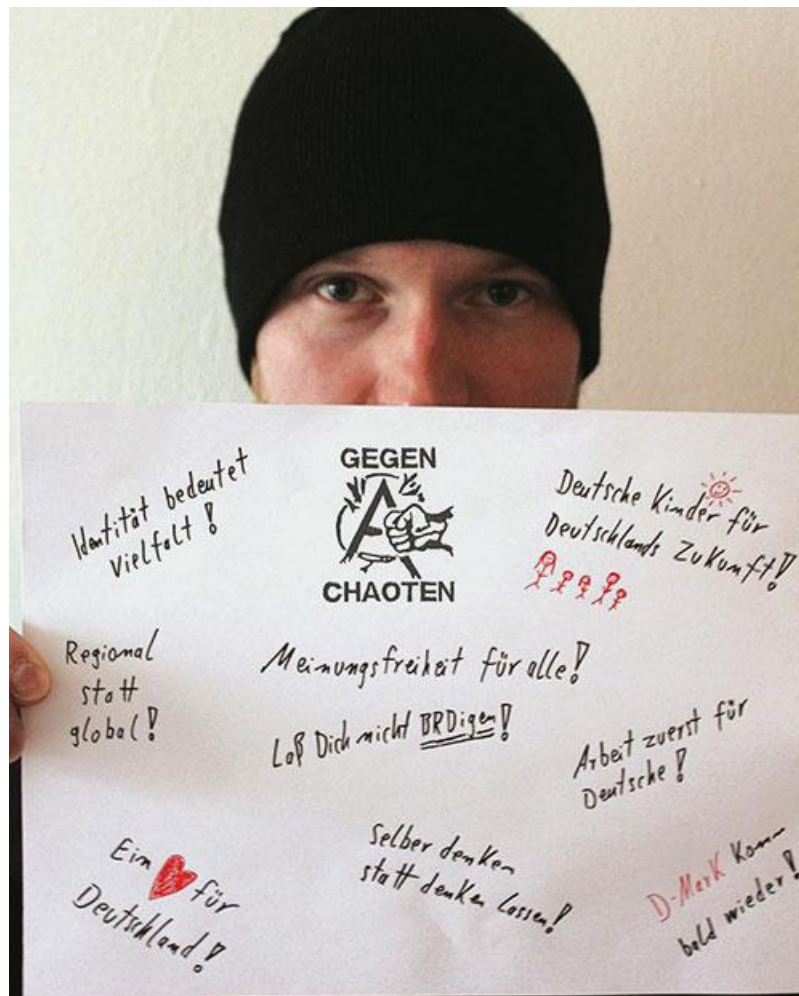 Identität bedeutet
Vielfalt!
GEGEN
CHAOTEN
Deutsche Kinder für
Deutschlands Zukunft!
Regional
statt
global!
Meinungsfreiheit für alle!
Laß Dich nicht BRDigen!
Arbeit zuerst für
Deutsche!
Ein
für
Deutschland!
Selber denken
statt denken lassen!
D-Mark komm
bald wieder!